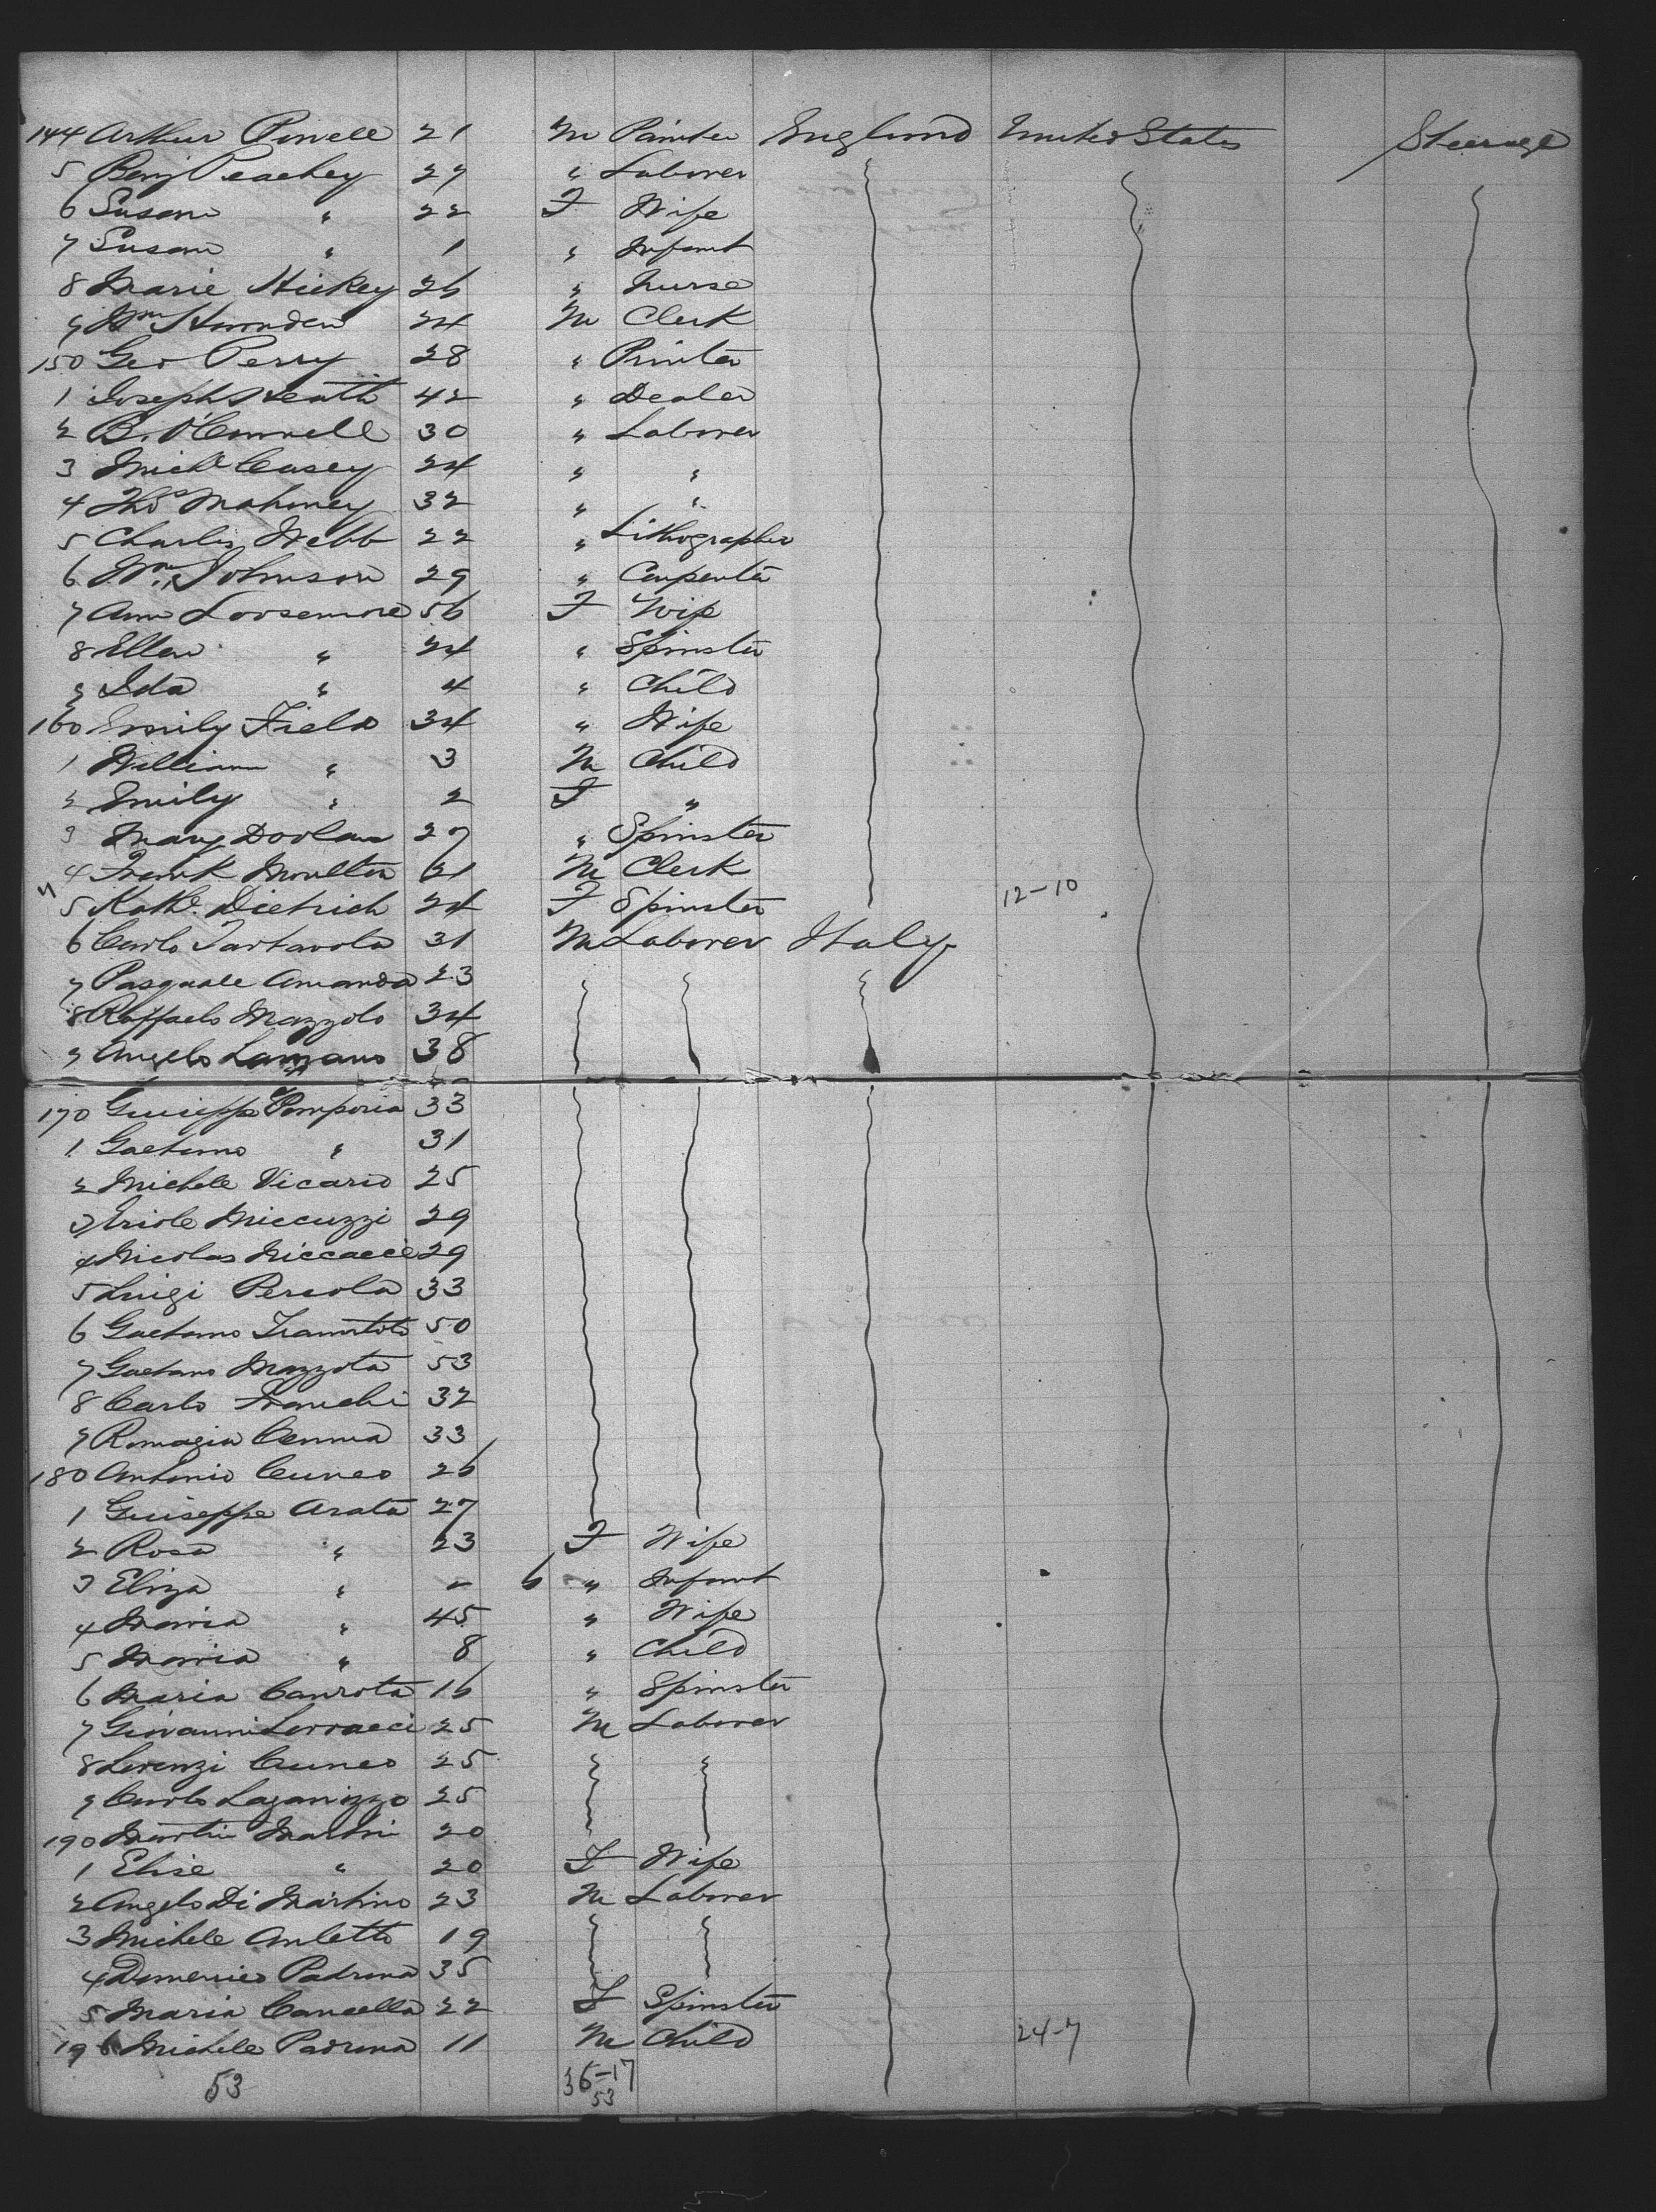 144 Arthur Powell 21 M Painter England United States Steerage
5 Benj Peachey 27 " Laborer
6 Susan " 22 F Wife
7 Susan " 1 " Infant
8 Marie Hickey 26 " Nurse
9 Wm 24 M Clerk
150 Geo Perry 28 " Printer
1 Joseph Heath 42 " Dealer
2 B. O'Connell 30 " Laborer
3 Michl Casey 24 " "
4 Thos Mahoney 32 " "
5 Charles Webb 22 " Lithographer
6 Wm. Johnson 29 " Carpenter
7 Ann Loosemore 56 F Wife
8 Ellen " 24 " Spinster
9 Ida " 4 " Child
160 Emily Field 34 " Wife
1 William " 3 M Child
2 Emily " 2 F "
3 Mary Doolan 27 " Spinster
4 Frank Moulton 21 M Clerk
5 Kathe. Dietrich 24 F Spinster 12-10
6 Carlo Tartavola 31 M Laborer Italy
7 Pasquale Amanda 23
8 Raffaelo Mazzolo 34
9 Angelo 38
170 Guiseppe Pomporia 33
1 Gaetano " 31
2 Michele Vicario 25
3 Miccuzzi 29
4 Nicolas 29
5 Luigi Persola 33
6 Gaetano 50
7 Gaetano Mazzota 53
8 Carlo Franchi 32
9 33
180 Antonio Cuneo 26
1 Guiseppe Arata 27
2 Rosa " 23 F Wife
3 Eliza " - 6 " Infant
4 Maria " 45 " Wife
5 Maria " 8 " Child
6 Maria Canrota 16 " Spinster
7 Giovanni 25 M Laborer
8 Lorenzi Cuneo 25 " "
9 Carlo Laganizzo 25
190 Martin Martini 20
1 Elise " 20 F Wife
2 Angelo Di Martino 23 M Laborer
3 Michele Auletto 19
4 Domenico Padrona 35
5 Maria Cancella 22 F Spinster
196 Michele Padrona 11 M Child 24-7
53 36-17
53